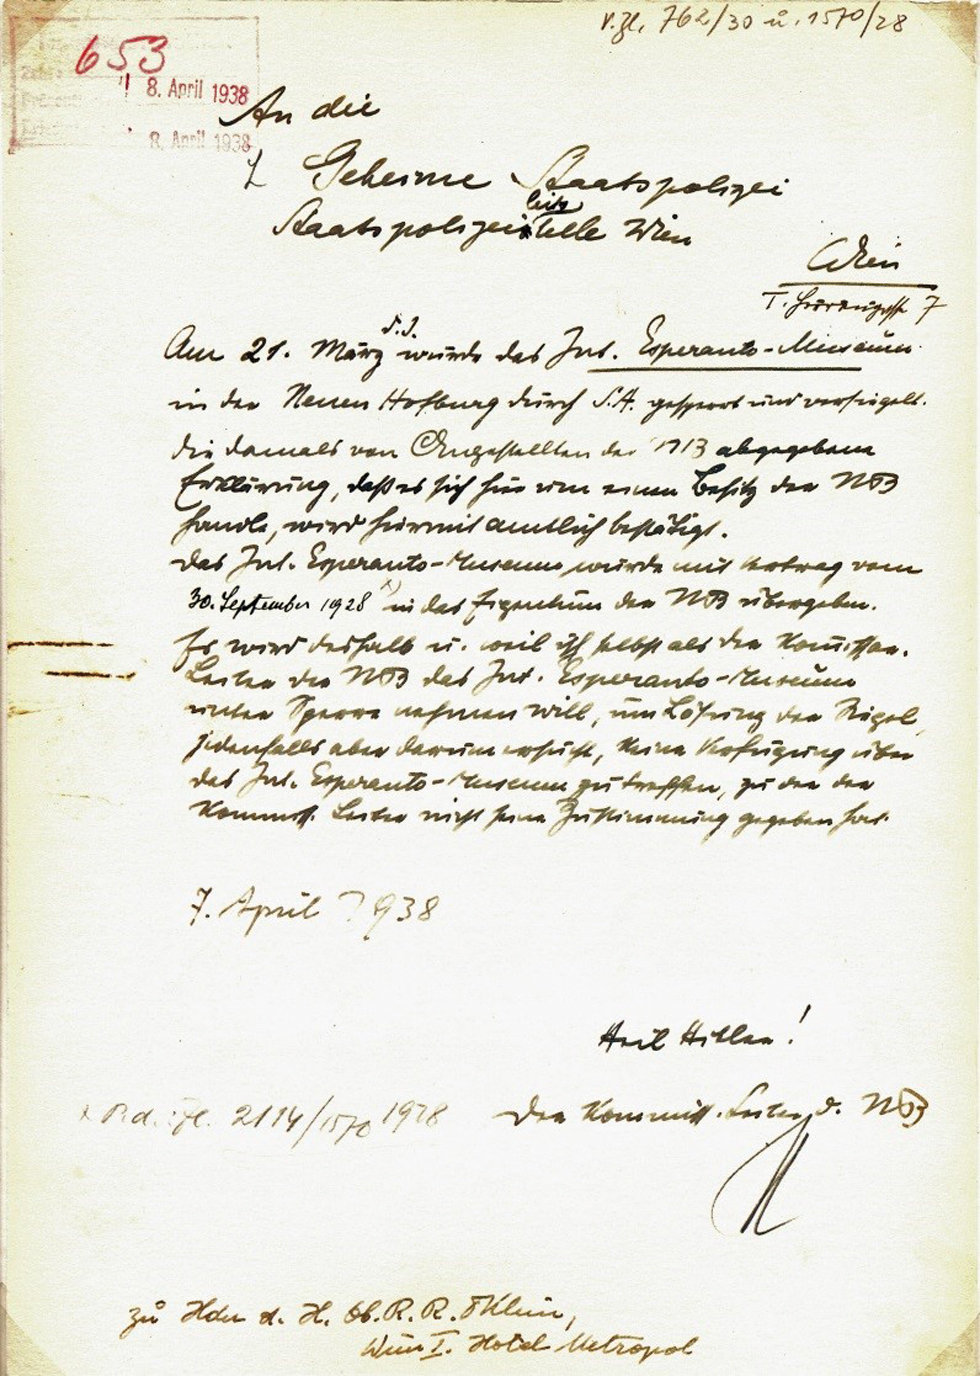 v. Zl. 762/30 u. 1570/28
653
8. April 1938
8. April 1938
An die
Geheime Staatspolizei
leit
Staatspolizeistelle Wien
Wien
I. Herrengasse 7
d. J.
Am 21. März wurde das Int. Esperanto-Museum
in der Neuen Hofburg durch S.A. gesperrt und versiegelt.
Die damals von Angestellten der NB abgegebene
Erklärung, daß es sich hier um einen Besitz der NB
handle, wird hiermit amtlich bestätigt.
Das Int. Esperanto-Museum wurde mit Vertrag vom
30. September 1928 x) in das Eigentum der NB übergeben.
Es wird deshalb u. weil ich selbst als der Komissar.
Leiter der NB das Int. Esperanto-Museum
unter Sperre nehmen will, um Lösung der Siegel,
jedenfalls aber darum ersucht, keine Verfügung über
das Int. Esperanto-Museum zu treffen, zu der der
Kommiss. Leiter nicht seine Zustimmung gegeben hat.
7. April 1938
Heil Hitler!
Der Kommiss. Leiter d. NB
Zl. 2114/1570 1928
zu Hden d. H. Ob. R. R. Klein,
Wien I. Hotel Metropol